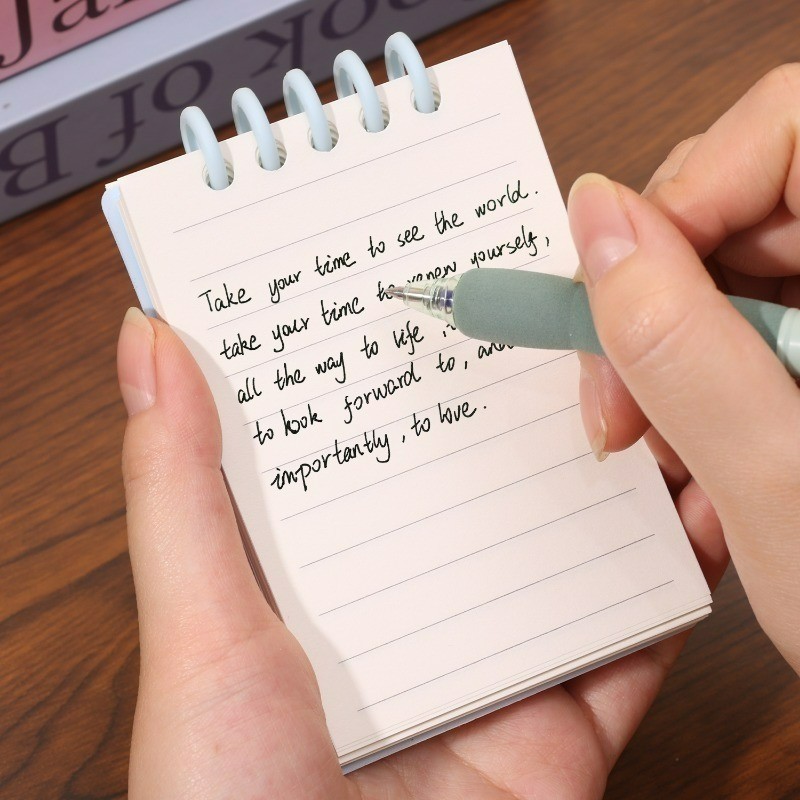 Ja
ook of B
Take your time to see the world.
take your time to renew yourself,
all the way to life
to look forward to, and
importantly, to love.